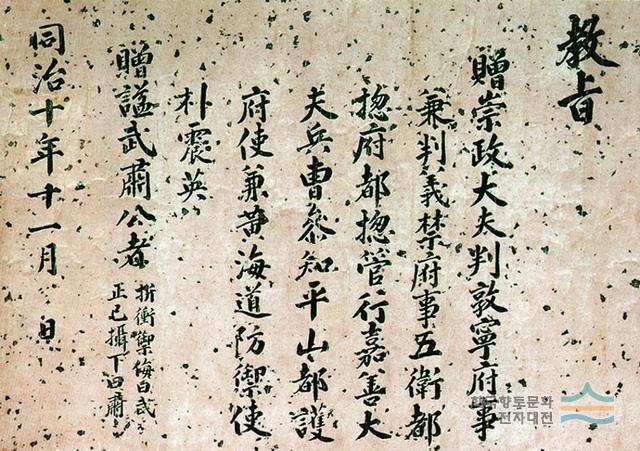 教旨
贈崇政大夫判敦寧府事
兼判義禁府事五衛都
揔府都揔管行嘉善大
夫兵曹叅知平山都護
府使兼黃海道防禦使
朴震英
贈諡武肅公者
折衝禦侮曰武
正己攝下曰肅
同治十年十一月 日
한국향토문화
전자대전